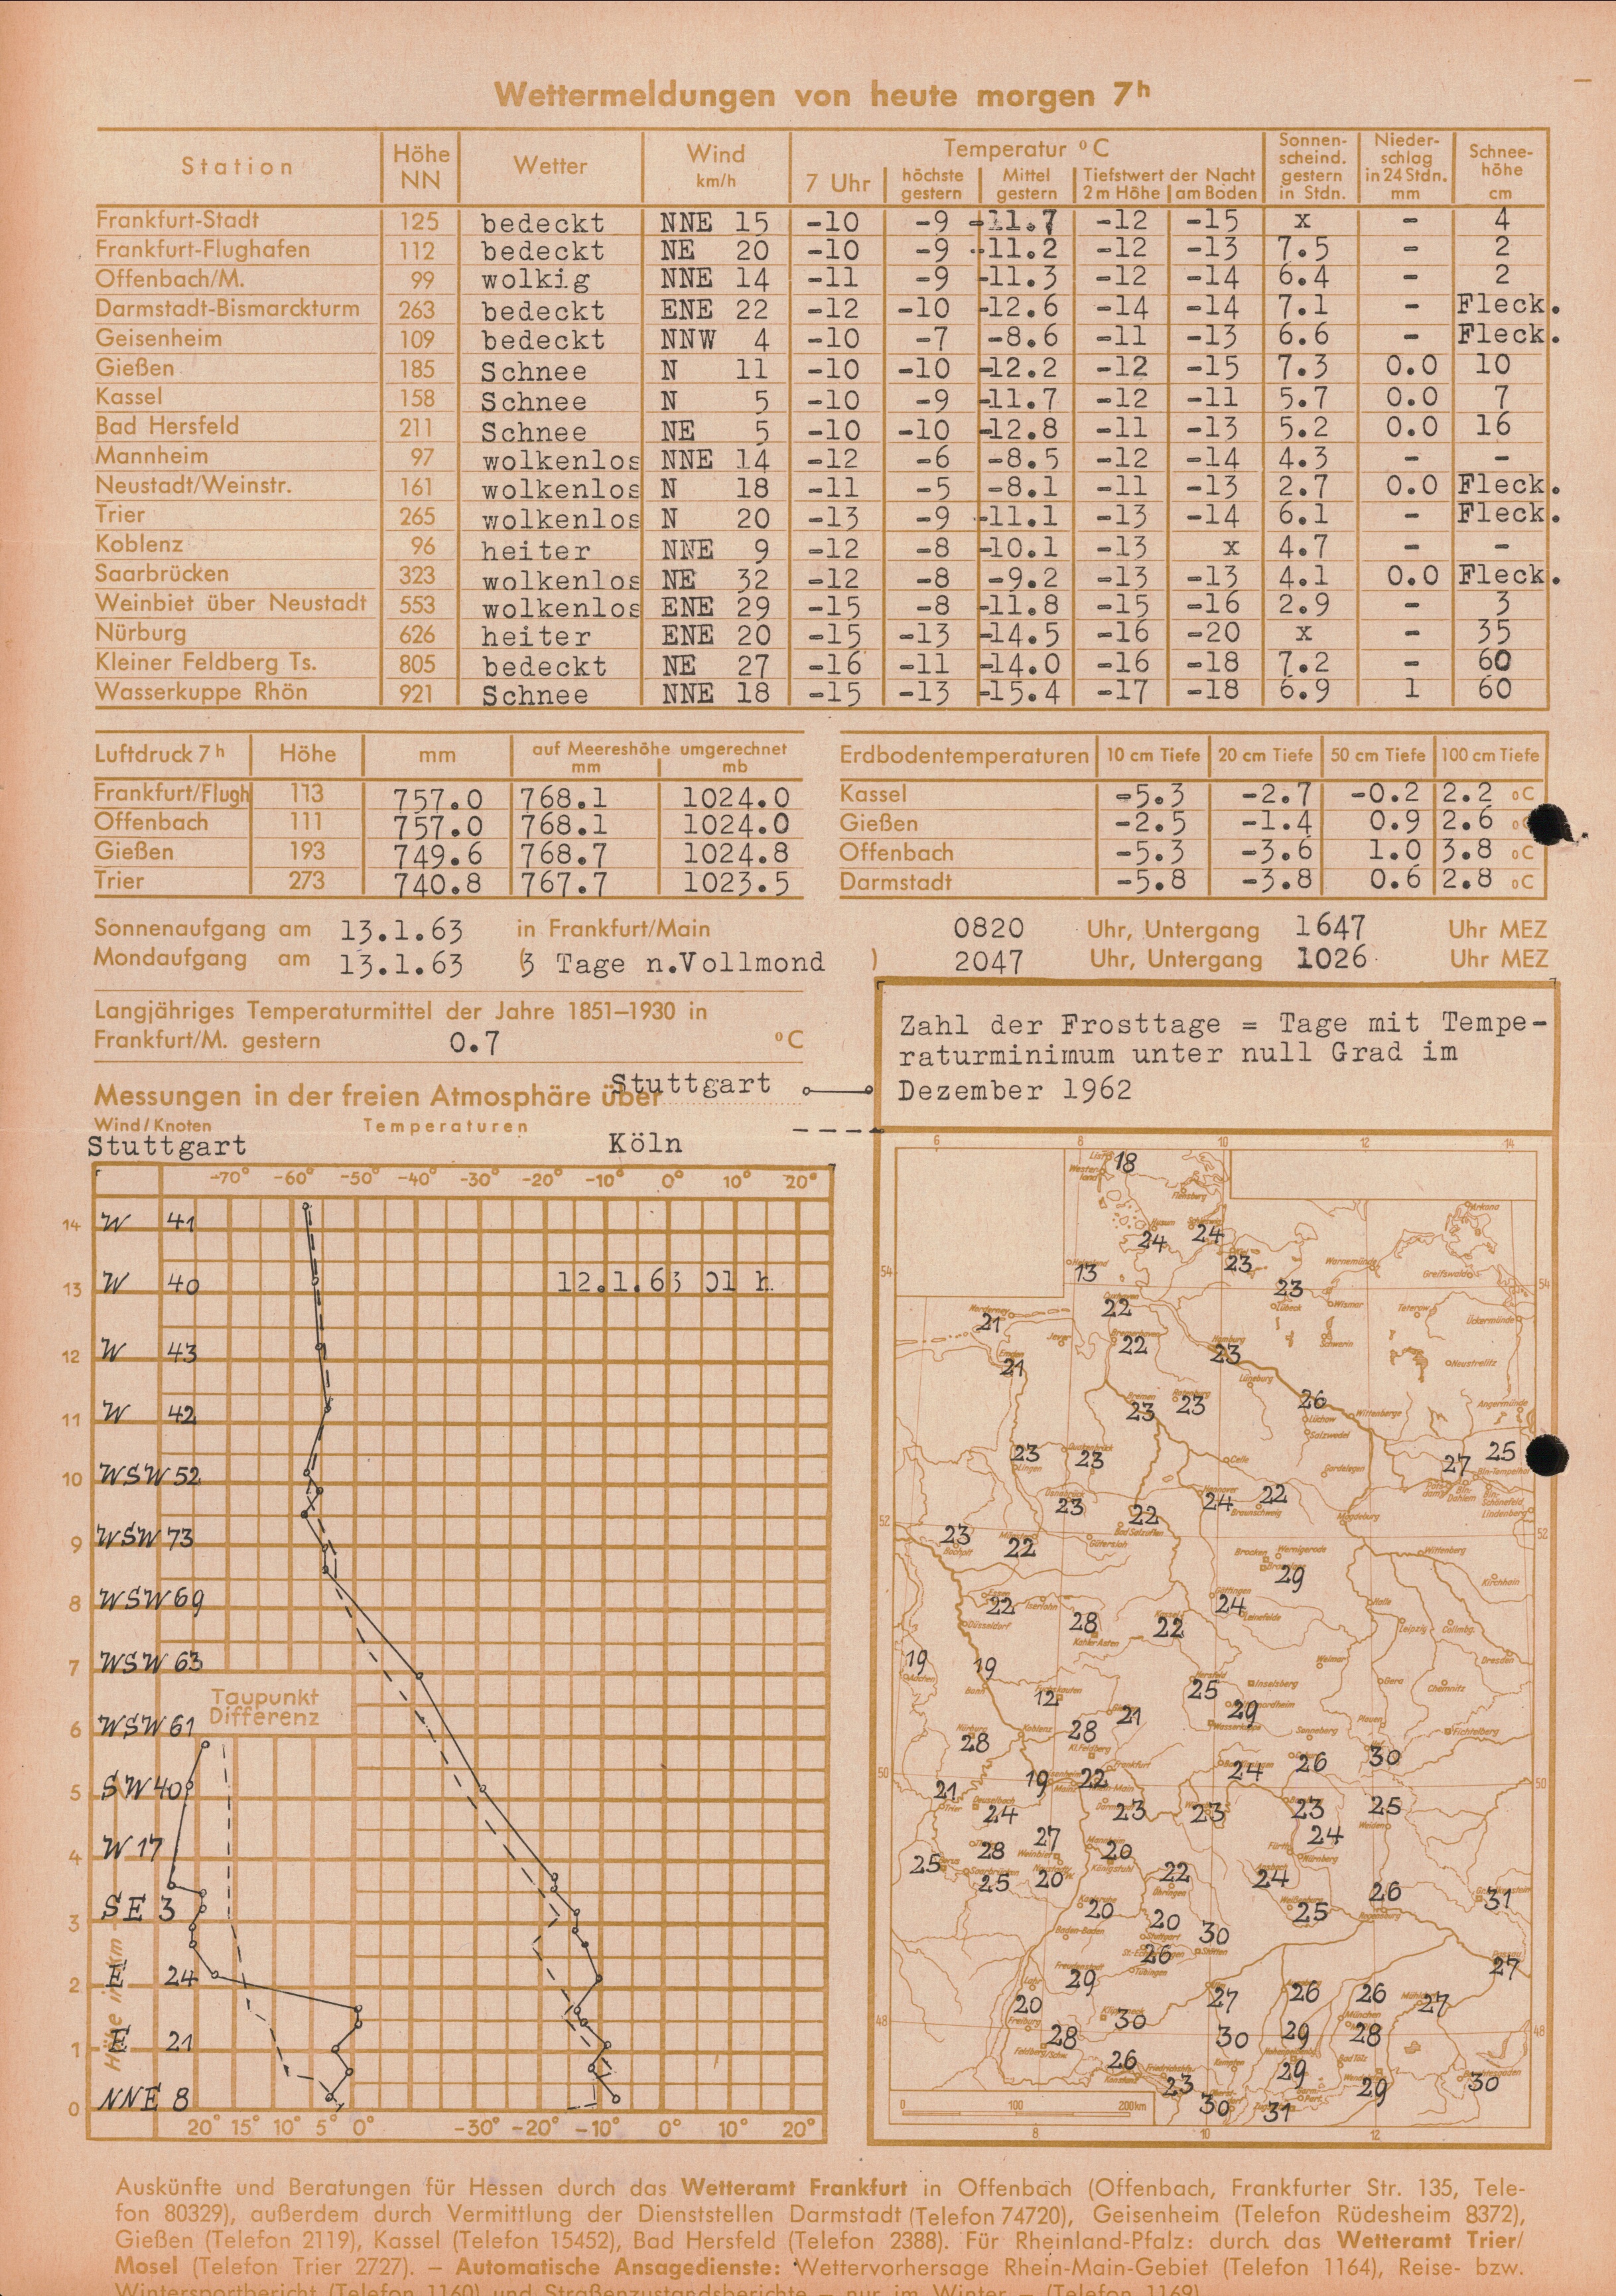 Wettermeldungen von heute morgen 7h
Station Höhe NN Wetter Wind km/h Temperatur °C Sonnen-scheind. gestern in Stdn. Nieder-schlag in 24 Stdn. mm Schnee-höhe cm
7 Uhr höchste gestern Mittel gestern Tiefstwert der Nacht 2 m Höhe am Boden
Frankfurt-Stadt 125 bedeckt NNE 15 -10 -9 -11.7 -12 -15 x - 4
Frankfurt-Flughafen 112 bedeckt NE 20 -10 -9 -11.2 -12 -13 7.5 - 2
Offenbach/M. 99 wolkig NNE 14 -11 -9 -11.3 -12 -14 6.4 - 2
Darmstadt-Bismarckturm 263 bedeckt ENE 22 -12 -10 -12.6 -14 -14 7.1 - Fleck.
Geisenheim 109 bedeckt NNW 4 -10 -7 -8.6 -11 -13 6.6 - Fleck.
Gießen 185 Schnee N 11 -10 -10 -12.2 -12 -15 7.3 0.0 10
Kassel 158 Schnee N 5 -10 -9 -11.7 -12 -11 5.7 0.0 7
Bad Hersfeld 211 Schnee NE 5 -10 -10 -12.8 -11 -13 5.2 0.0 16
Mannheim 97 wolkenlos NNE 14 -12 -6 -8.5 -12 -14 4.3 - -
Neustadt/Weinstr. 161 wolkenlos N 18 -11 -5 -8.1 -11 -13 2.7 0.0 Fleck.
Trier 265 wolkenlos N 20 -13 -9 -11.1 -13 -14 6.1 - Fleck.
Koblenz 96 heiter NNE 9 -12 -8 -10.1 -13 x 4.7 - -
Saarbrücken 323 wolkenlos NE 32 -12 -8 -9.2 -13 -13 4.1 0.0 Fleck.
Weinbiet über Neustadt 553 wolkenlos ENE 29 -15 -8 -11.8 -15 -16 2.9 - 3
Nürburg 626 heiter ENE 20 -15 -13 -14.5 -16 -20 x - 35
Kleiner Feldberg Ts. 805 bedeckt NE 27 -16 -11 -14.0 -16 -18 7.2 - 60
Wasserkuppe Rhön 921 Schnee NNE 18 -15 -13 -15.4 -17 -18 6.9 1 60
Luftdruck 7h Höhe mm auf Meereshöhe umgerechnet mm mb
Frankfurt/Flugh 113 757.0 768.1 1024.0
Offenbach 111 757.0 768.1 1024.0
Gießen 193 749.6 768.7 1024.8
Trier 273 740.8 767.7 1023.5
Erdbodentemperaturen 10 cm Tiefe 20 cm Tiefe 50 cm Tiefe 100 cm Tiefe
Kassel -5.3 -2.7 -0.2 2.2 °C
Gießen -2.5 -1.4 0.9 2.6
Offenbach -5.3 -3.6 1.0 3.8 °C
Darmstadt -5.8 -3.8 0.6 2.8 °C
Sonnenaufgang am 13.1.63 in Frankfurt/Main 0820 Uhr, Untergang 1647 Uhr MEZ
Mondaufgang am 13.1.63 (3 Tage n.Vollmond ) 2047 Uhr, Untergang 1026 Uhr MEZ
Langjähriges Temperaturmittel der Jahre 1851–1930 in
Frankfurt/M. gestern 0.7 °C
Messungen in der freien Atmosphäre über Stuttgart
Wind/Knoten Temperaturen
Stuttgart Köln
-70° -60° -50° -40° -30° -20° -10° 0° 10° 20°
14 W 41
13 W 40 12.1.63 01 h
12 W 43
11 W 42
10 WSW 52
9 WSW 73
8 WSW 69
7 WSW 63
Taupunkt
Differenz
6 WSW 61
5 SW 40
4 W 17
3 SE 3
2 E 24
1 E 21
0 NNE 8
Höhe in km
20° 15° 10° 5° 0° -30° -20° -10° 0° 10° 20°
Zahl der Frosttage = Tage mit Tempe-
raturminimum unter null Grad im
Dezember 1962
6 8 10 12 14
18
24 24
13 23
54 23 54
22
21 22
21 23
23 23 26
23 23 27 25
23 24 22
52 23 22 22 52
29
22 28 22 24
19 19
12 25 29
28 28 21
50 21 19 22 24 26 30 50
24 23 23 23 25
24
25 28 27 20
25 20 22 24 26 31
20 20 30 25
26 27
29 27 26 26 27
20 30
48 28 30 29 28 48
26 29
23 30 31 29 30
0 100 200 km
8 10 12
Auskünfte und Beratungen für Hessen durch das Wetteramt Frankfurt in Offenbach (Offenbach, Frankfurter Str. 135, Tele-
fon 80329), außerdem durch Vermittlung der Dienststellen Darmstadt (Telefon 74720), Geisenheim (Telefon Rüdesheim 8372),
Gießen (Telefon 2119), Kassel (Telefon 15452), Bad Hersfeld (Telefon 2388). Für Rheinland-Pfalz: durch das Wetteramt Trier/
Mosel (Telefon Trier 2727). – Automatische Ansagedienste: Wettervorhersage Rhein-Main-Gebiet (Telefon 1164), Reise- bzw.
Wintersportbericht (Telefon 1160) und Straßenzustandsberichte – nur im Winter – (Telefon 1169)